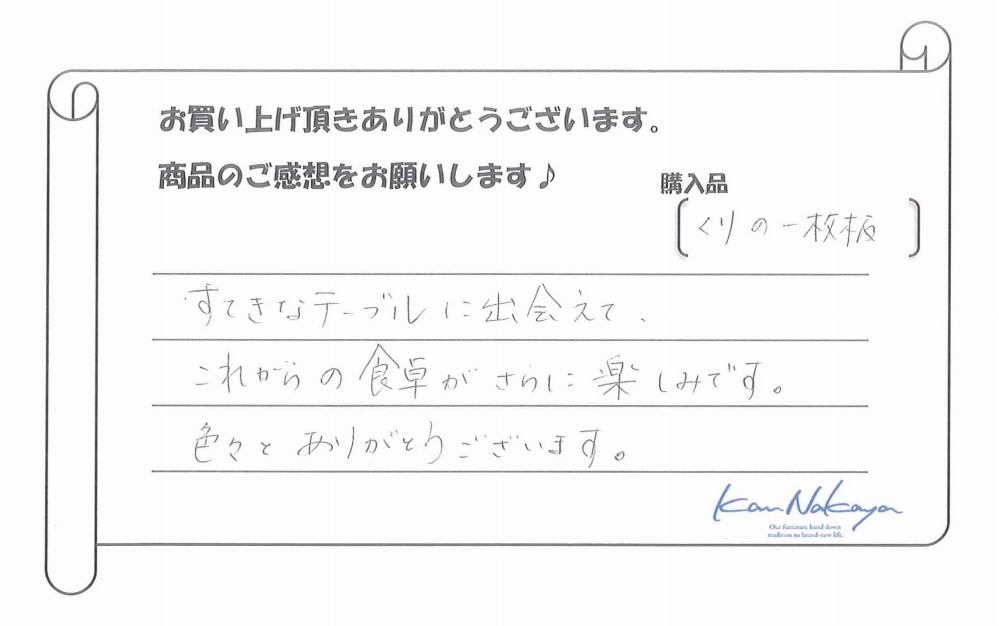 お買い上げ頂きありがとうございます。
商品のご感想をお願いします♪
購入品
[くりの一枚板]
すてきなテーブルに出会えて、
これからの食卓がさらに楽しみです。
色々とありがとうございます。
Kan Nakaya
Our furniture hand down
tradition to brand-new life.